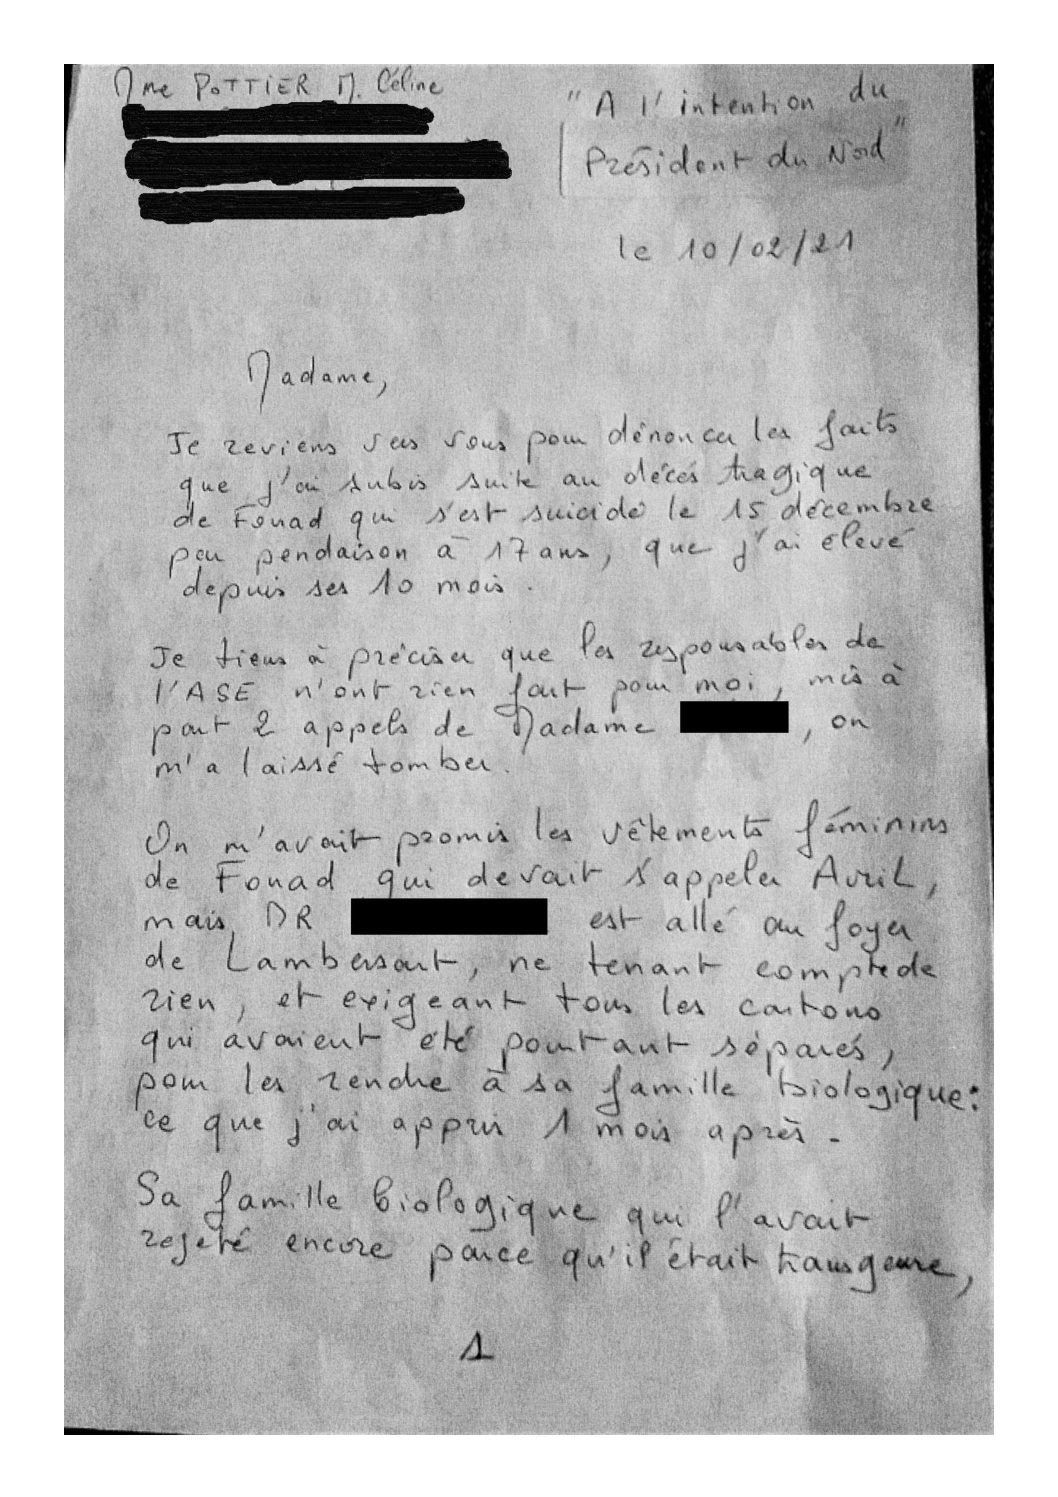 Mme POTTIER M. Céline
"A l'intention du
Président du Nord"
le 10/02/21
Madame,
Je reviens vers vous pour dénoncer les faits
que j'ai subis suite au décés tragique
de Fouad qui s'est suicidé le 15 décembre
par pendaison à 17 ans, que j'ai élevé
depuis ses 10 mois.
Je tiens à préciser que les responsables de
l'ASE n'ont rien fait pour moi, mis à
part 2 appels de Madame , on
m'a laissé tomber.
On m'avait promis les vêtements féminins
de Fouad qui devait s'appeler Avril,
mais DR est allé au foyer
de Lambersart, ne tenant compte de
rien, et exigeant tous les cartons
qui avaient été pourtant séparés,
pour les rendre à sa famille biologique:
ce que j'ai appris 1 mois après -
Sa famille biologique qui l'avait
rejeté encore parce qu'il était transgenre,
1